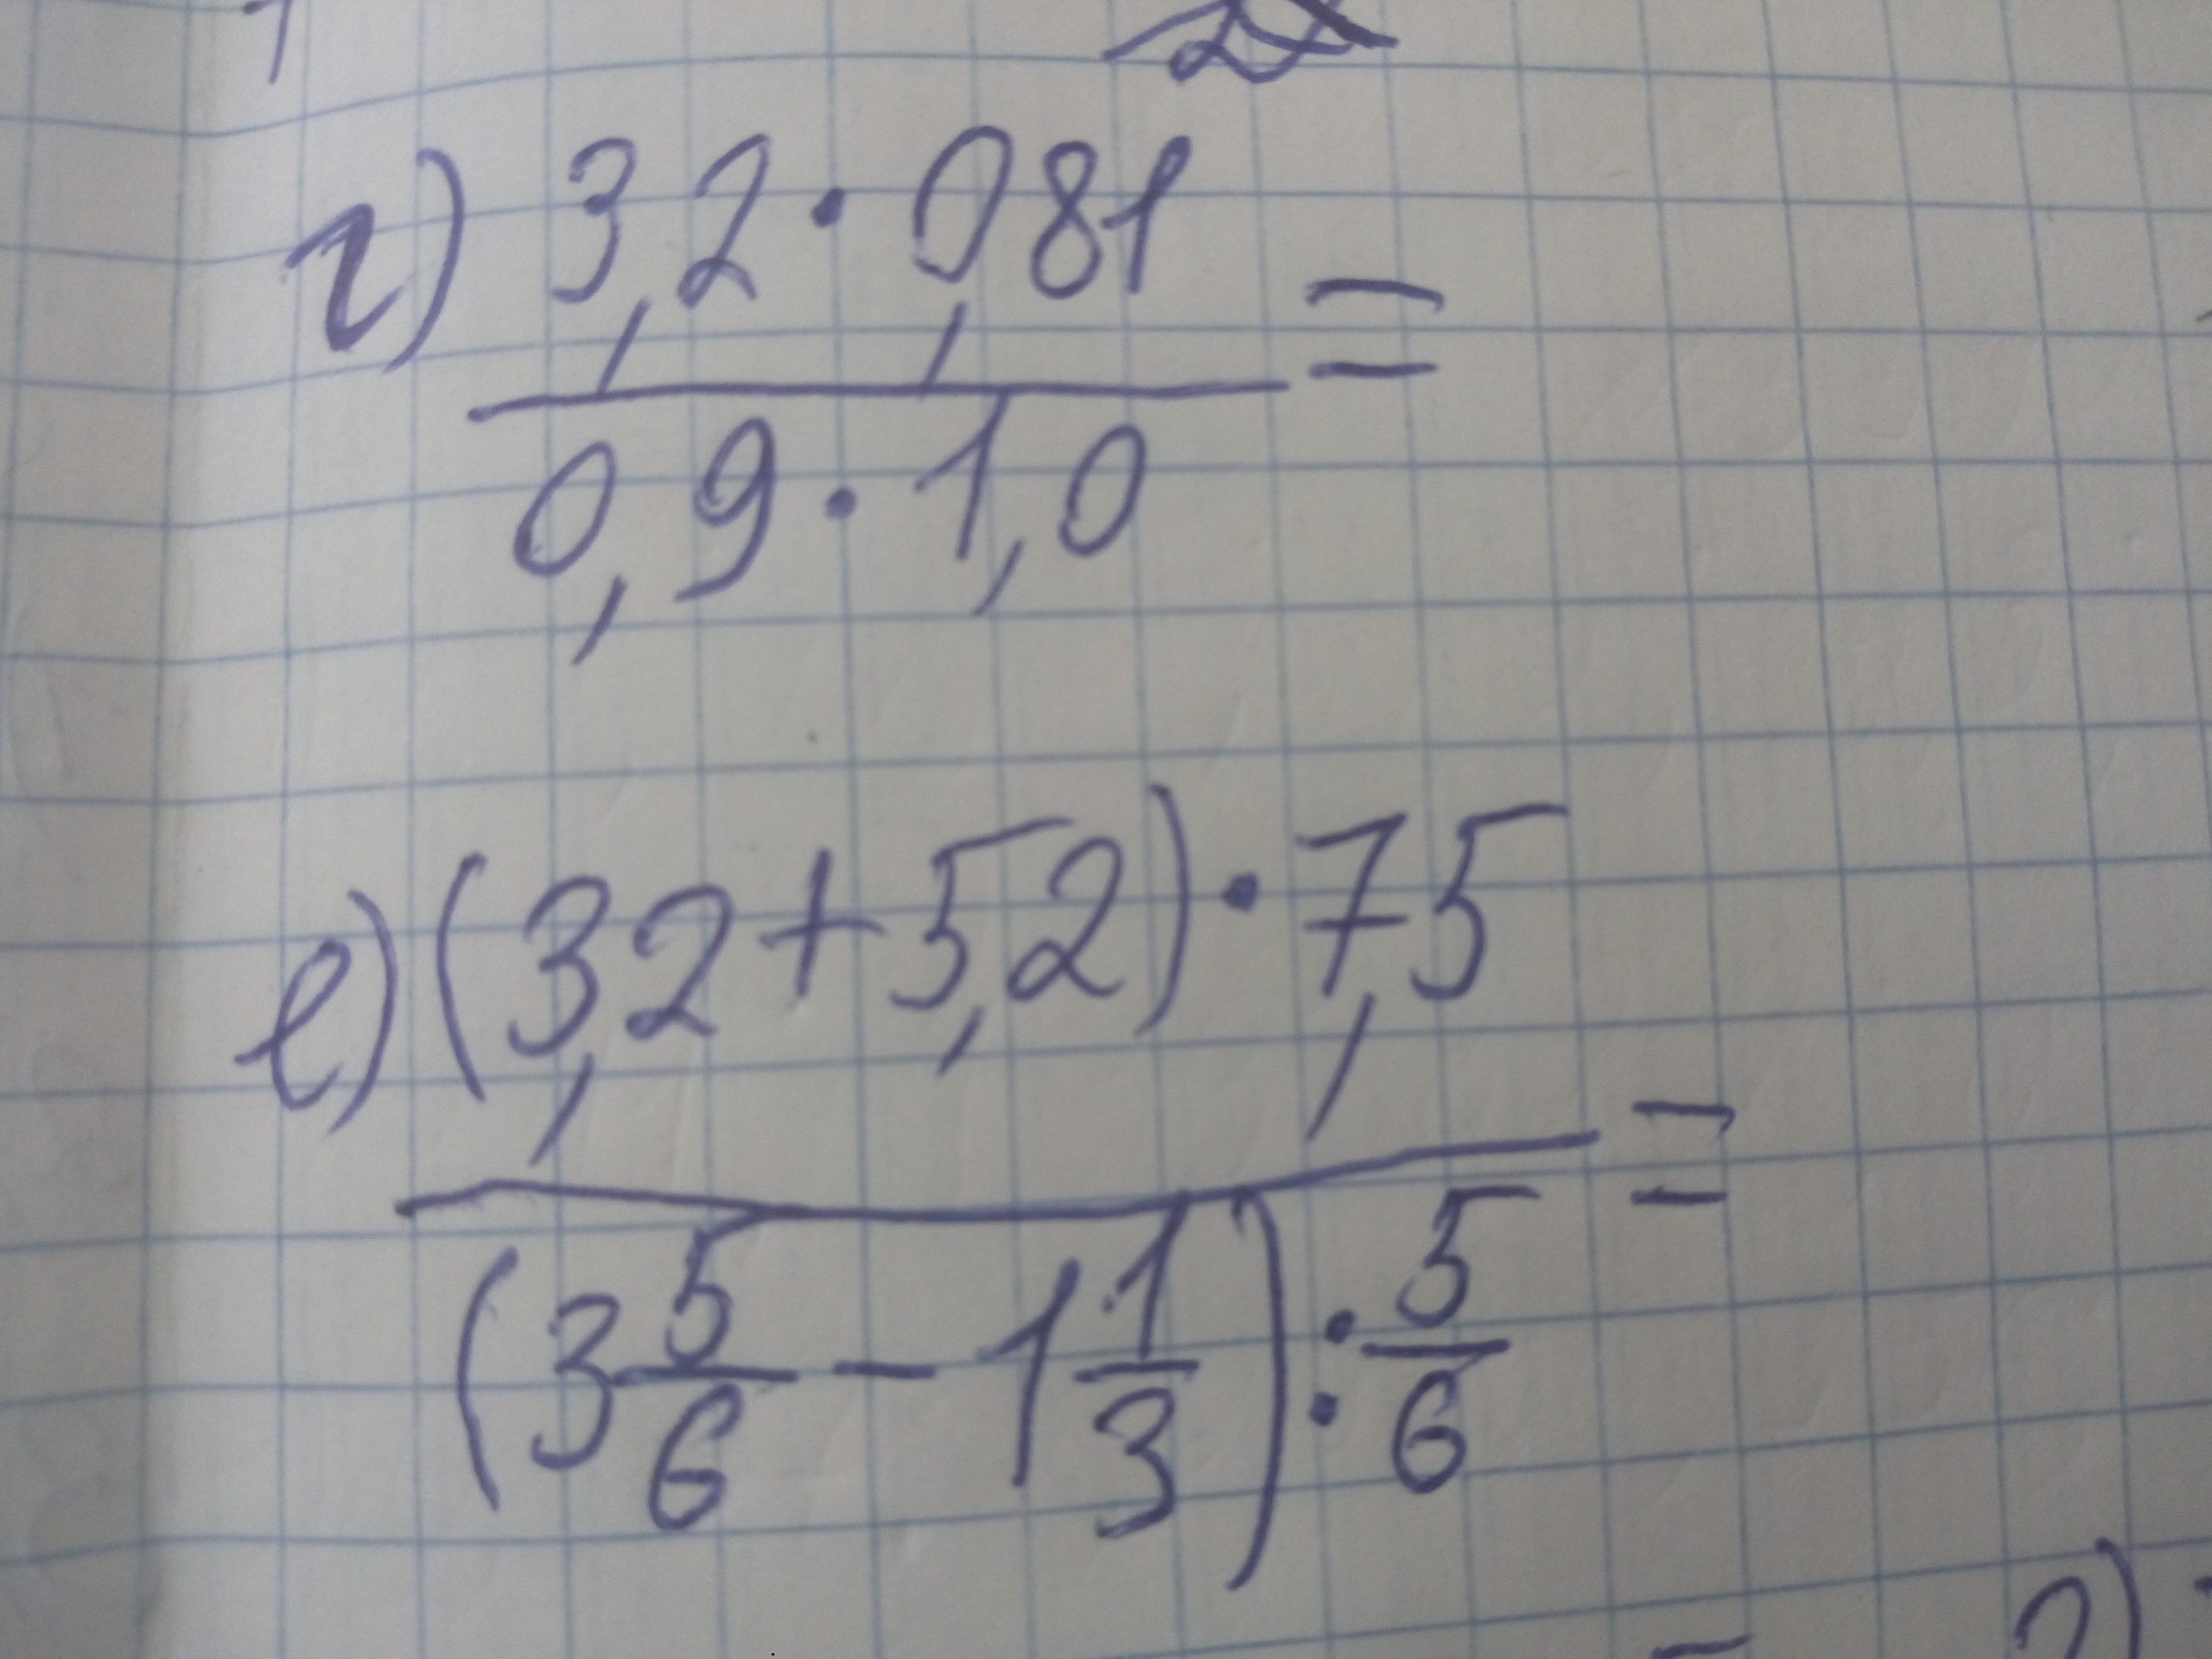 г) 3,2 · 0,81 =
0,9 · 1,0
е) (3,2 + 5,2) · 7,5 =
(3 5/6 − 1 1/3) : 5/6